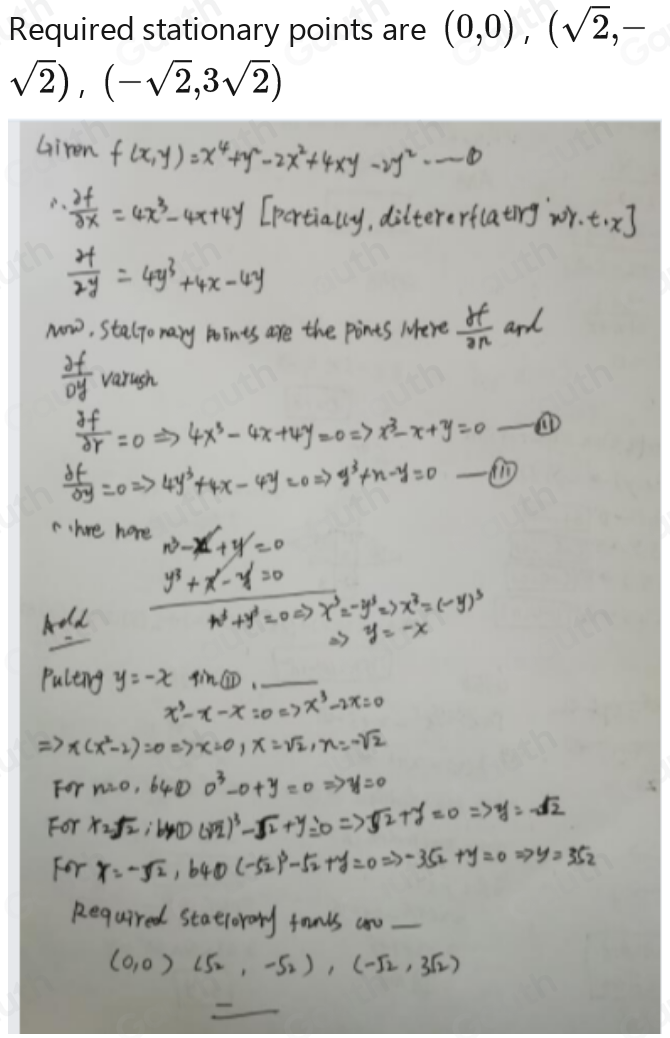 Required stationary points are (0,0) , (√2,−
√2) , (−√2,3√2)
Given f(x,y)=x⁴+y⁴-2x²+4xy-2y² ---- ①
∴ ∂f/∂x = 4x³-4x+4y [partially, w.r.t.x]
∂f/∂y = 4y³+4x-4y
Now, stationary points are the points where and
∂f/∂y vanish
=0 ⇒ 4x³-4x+4y=0 ⇒ x³-x+y=0 — (II)
∂f/∂y =0 ⇒ 4y³+4x-4y=0 ⇒ y³+x-y=0 — (III)
have x³-x+y=0
y³+x-y=0
Add x³+y³=0 ⇒ x³=-y³ ⇒ x³=(-y)³
⇒ y=-x
y=-x in (II), —
x³-x-x=0 ⇒ x³-2x=0
⇒ x(x²-2)=0 ⇒ x=0, x=√2, x=-√2
For x=0, 0³-0+y=0 ⇒ y=0
For x=√2, (√2)³-√2+y=0 ⇒ √2+y=0 ⇒ y=-√2
For x=-√2, (-√2)³-√2+y=0 ⇒ -3√2+y=0 ⇒ y=3√2
Required —
(0,0) (√2, -√2), (-√2, 3√2)